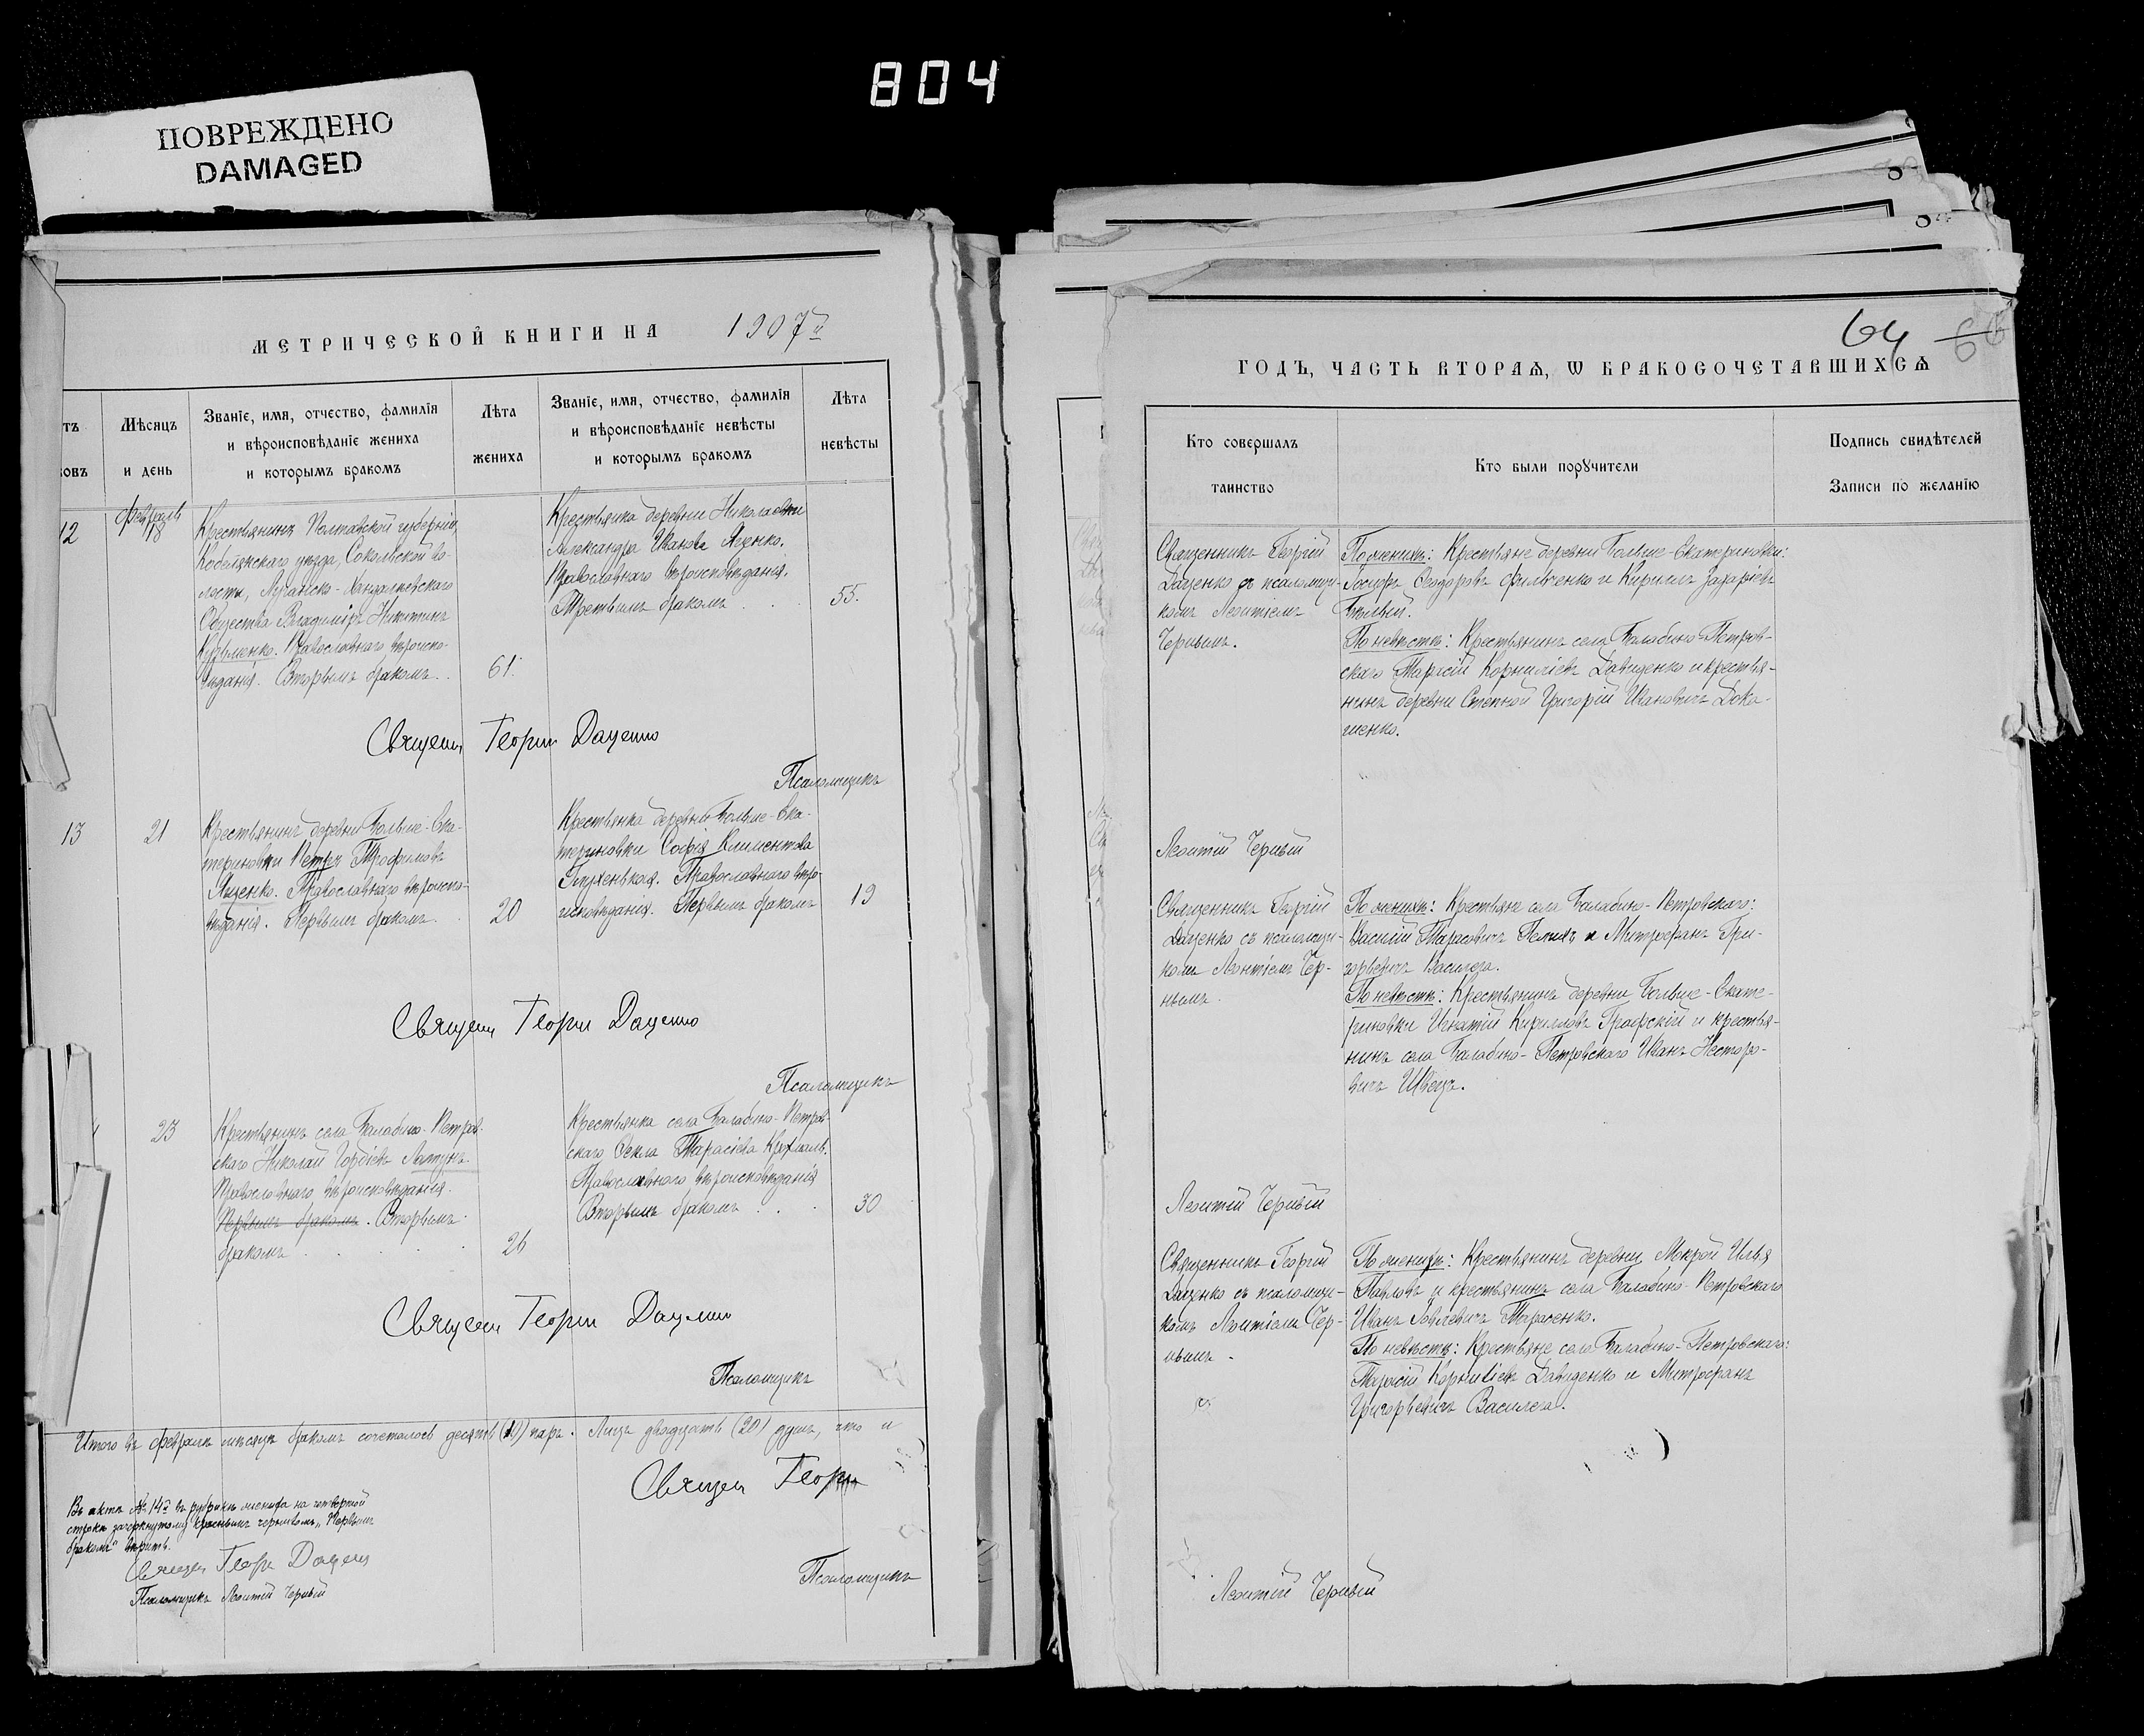 804
ПОВРЕЖДЕНО
DAMAGED
МЕТРИЧЕСКОЙ КНИГИ НА 1907й
тъ
овъ
Мѣсяцъ
и день
Званіе, имя, отчество, фамилія
и вѣроисповѣданіе жениха
и которымъ бракомъ
Лѣта
жениха
Званіе, имя, отчество, фамилія
и вѣроисповѣданіе невѣсты
и которымъ бракомъ
Лѣта
невѣсты
12
Февраль
18
Крестьянинъ Полтавской губерніи,
Кобелякскаго уѣзда, Сокольской во-
лости,
Общества Владиміръ Никитинъ
Кузьменко. Православнаго вѣроиспо-
вѣданія. Вторымъ бракомъ.
61.
Крестьянка деревни Николаевки
Александра Иванова Яценко.
Православнаго вѣроисповѣданія.
Третьимъ бракомъ
55.
Священ Георги Даценко
Псаломщикъ
13
21
Крестьянинъ деревни Больше-Ека-
териновки Петръ Трофимовъ
Яценко. Православнаго вѣроиспо-
вѣданія. Первымъ бракомъ.
20
Крестьянка деревни Больше-Ека-
териновки Софія Климентова
Глухенькая. Православнаго вѣро-
исповѣданія. Первымъ бракомъ
19
Священ Георги Даценко
Псаломщикъ
23
Крестьянинъ села Балабино-Петров-
скаго Николай Гордіевъ Лантухъ.
Православнаго вѣроисповѣданія.
Первымъ бракомъ. Вторымъ
бракомъ
26
Крестьянка села Балабино-Петров-
скаго Фекла Тарасіева Крохмаль.
Православнаго вѣроисповѣданія
Вторымъ бракомъ
30
Священ Георги Даценко
Псаломщикъ
Итого въ февралѣ мѣсяцѣ бракомъ сочеталось десять (10) паръ. Лицъ двадцать (20) душъ, что и
Священ Георги
Въ актѣ № 14й въ рубрикѣ жениха на четвертой
строкѣ зачеркнутому краснымъ чернилом „Первымъ
бракомъ" вѣрить.
Священ Георги Даценко
Псаломщикъ Леонтій Черный
Псаломщикъ
64
66
ГОДЪ, ЧАСТЬ ВТОРАЯ, Ѡ БРАКОСОЧЕТАВШИХСЯ
Кто совершалъ
таинство
Кто были порꙋчители
Подпись свидѣтелей
Записи по желанію
Священникъ Георгій
Даценко съ псаломщи-
комъ Леонтіемъ
Чернымъ.
По женихѣ: Крестьяне деревни Больше-Екатериновки:
Іосифъ Феодоровъ Фильченко и Кириллъ Захаріевъ
Бѣлый.
По невѣстѣ: Крестьянинъ села Балабино-Петров-
скаго Тарасій Корниліевъ Давиденко и крестья-
нинъ деревни Степной Григорій Ивановичъ Дока-
шенко.
Леонтій Черный
Священникъ Георгій
Даценко съ псаломщи-
комъ Леонтіемъ Чер-
нымъ.
По женихѣ: Крестьяне села Балабино-Петровскаго:
Василій Тарасовичъ и Митрофанъ Гри-
горьевичъ Василега.
По невѣстѣ: Крестьянинъ деревни Больше-Екате-
риновки Игнатій Кирилловъ Графскій и крестья-
нинъ села Балабино-Петровскаго Иванъ Несторо-
вичъ Швецъ.
Леонтій Черный
Священникъ Георгій
Даценко съ псаломщи-
комъ Леонтіемъ Чер-
нымъ.
По женихѣ: Крестьянинъ деревни Мокрой Илья
Павловъ и крестьянинъ села Балабино-Петровскаго
Иванъ Тарасенко.
По невѣстѣ: Крестьяне села Балабино-Петровскаго:
Тарасій Корниліевъ Давиденко и Митрофанъ
Григорьевичъ Василега.
Леонтій Черный